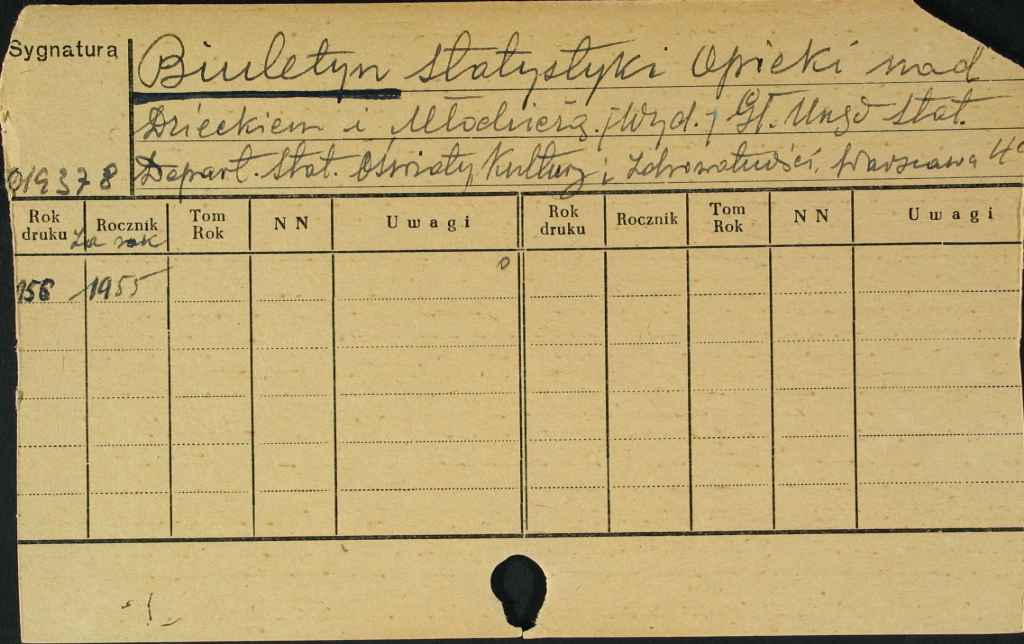 Sygnatura
Biuletyn Statystyki Opieki nad
Dzieckiem i Młodzieżą. /Wyd./ Gł. Urząd Stat.
Depart. Stat. Oświaty, Kultury i Zdrowotności. Warszawa 4°
019378
Rok druku Rocznik Tom Rok NN Uwagi Rok druku Rocznik Tom Rok NN Uwagi
Za rok
156 1955